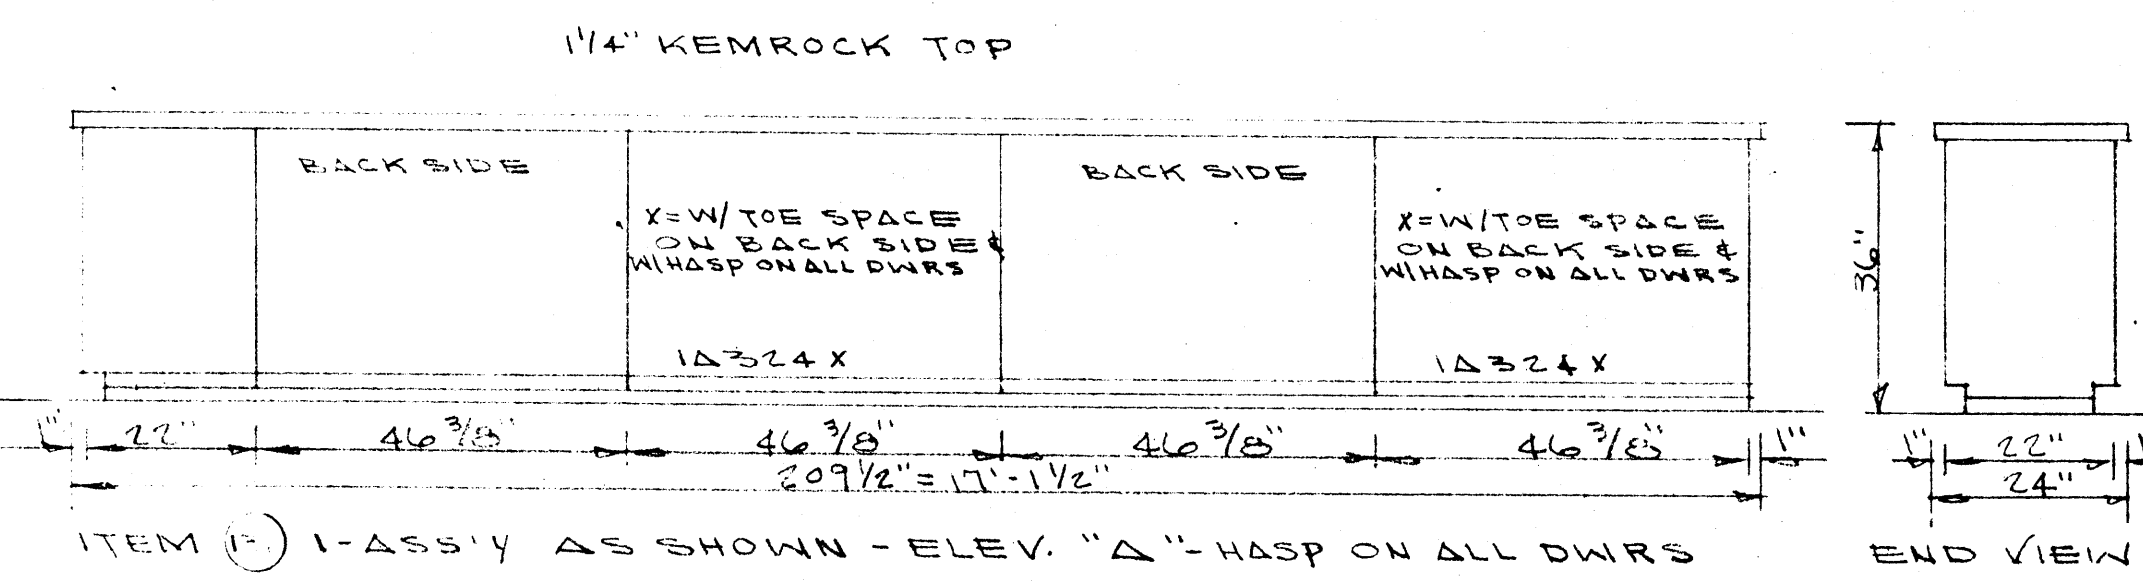 1 1/4" KEMROCK TOP
BACK SIDE
X=W/ TOE SPACE
ON BACK SIDE &
W/HASP ON ALL DWRS
1A324X
BACK SIDE
X=W/TOE SPACE
ON BACK SIDE &
W/HASP ON ALL DWRS
1A324X
36"
1" 22" 46 3/8" 46 3/8" 46 3/8" 46 3/8" 1"
209 1/2" = 17'-1 1/2"
1" 22" 1
24"
ITEM 1-ASS'Y AS SHOWN - ELEV. "A" - HASP ON ALL DWRS
END VIEW